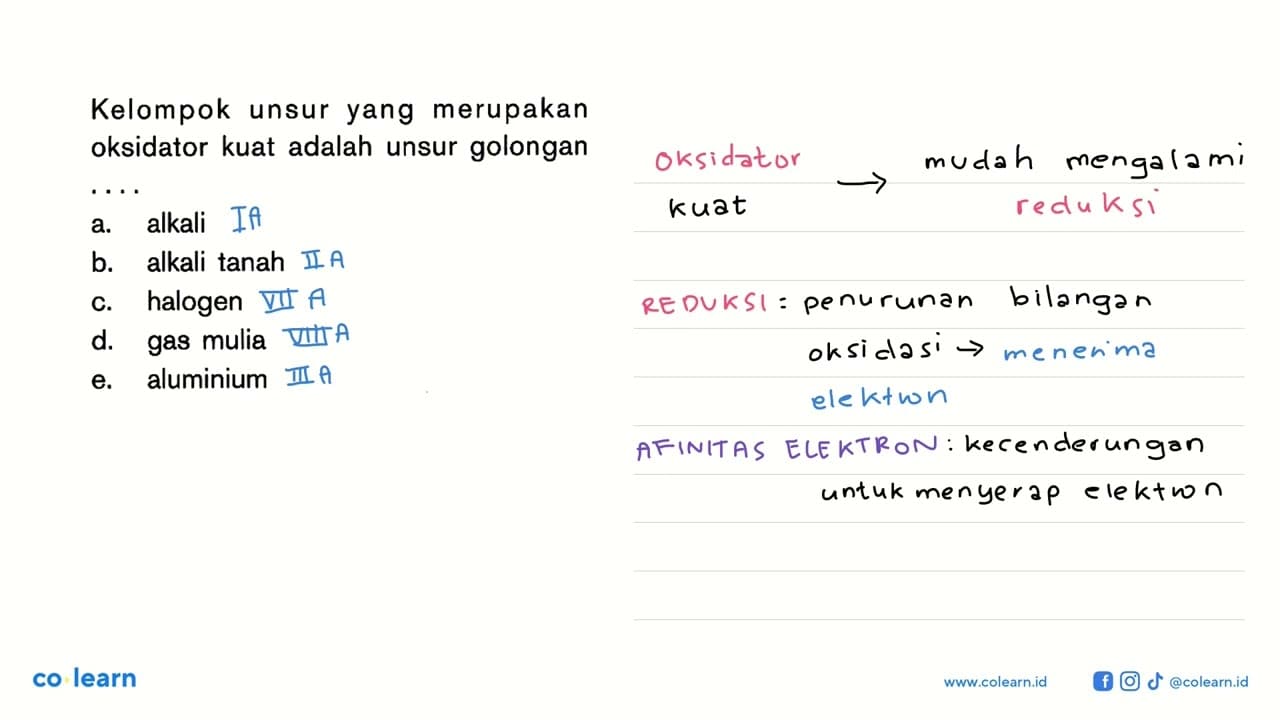 Kelompok unsur yang merupakan
oksidator kuat adalah unsur golongan
....
a. alkali IA
b. alkali tanah IIA
c. halogen VIIA
d. gas mulia VIIIA
e. aluminium IIIA
Oksidator → mudah mengalami
kuat reduksi
REDUKSI : penurunan bilangan
oksidasi → menerima
elektron
AFINITAS ELEKTRON : kecenderungan
untuk menyerap elektron
co learn
www.colearn.id @colearn.id